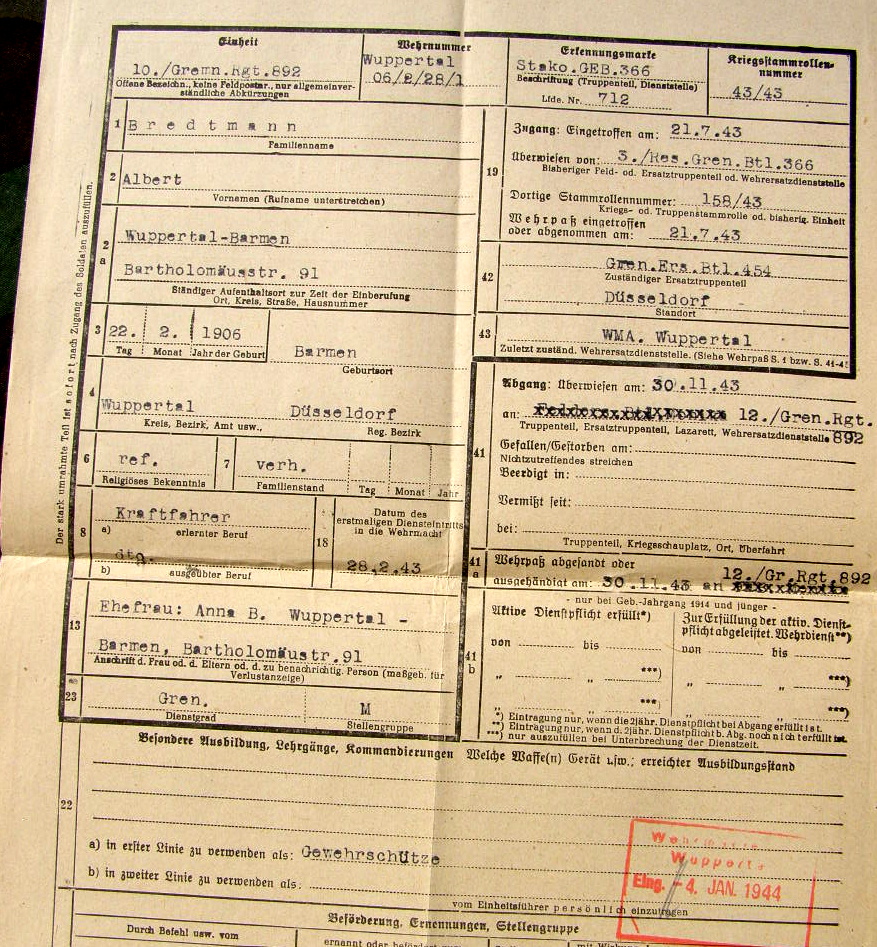 Einheit
10./Gremn.Rgt.892
Offene Bezeichn., keine Feldpostnr., nur allgemeinver-
ständliche Abkürzungen
Wehrnummer
Wuppertal
06/2/28/1
Erkennungsmarke
Stako.GEB.366
Beschriftung (Truppenteil, Dienststelle)
Lfde. Nr. 712
Kriegsstammrollen-
nummer
43/43
Der stark umrahmte Teil ist sofort nach Zugang des Soldaten auszufüllen.
1 Bredtmann
Familienname
2 Albert
Vornamen (Rufname unterstreichen)
2 a Wuppertal-Barmen
Bartholomäusstr. 91
Ständiger Aufenthaltsort zur Zeit der Einberufung
Ort, Kreis, Straße, Hausnummer
3 22. 2. 1906 Barmen
Tag Monat Jahr der Geburt Geburtsort
4 Wuppertal Düsseldorf
Kreis, Bezirk, Amt usw., Reg. Bezirk
6 ref. 7 verh.
Religiöses Bekenntnis Familienstand Tag Monat Jahr
8 Kraftfahrer
a) erlernter Beruf
dto.
b) ausgeübter Beruf
18 Datum des
erstmaligen Diensteintritts
in die Wehrmacht
28.2.43
13 Ehefrau: Anna B. Wuppertal -
Barmen, Bartholomäusstr.91
Anschrift d. Frau od. d. Eltern od. d. zu benachrichtig. Person (maßgeb. für
Verlustanzeige)
23 Gren. M
Dienstgrad Stellengruppe
19 Zugang: Eingetroffen am: 21.7.43
Überwiesen von: 3./Res.Gren.Btl.366
Bisheriger Feld- od. Ersatztruppenteil od. Wehrersatzdienststelle
Dortige Stammrollennummer: 158/43
Kriegs- od. Truppenstammrolle od. bisherig. Einheit
Wehrpaß eingetroffen
oder abgenommen am: 21.7.43
42 Gren.Ers.Btl.454
Zuständiger Ersatztruppenteil
Düsseldorf
Standort
43 WMA. Wuppertal
Zuletzt zuständ. Wehrersatzdienststelle. (Siehe Wehrpaß S. 1 bzw. S. 41-4
41 Abgang: Überwiesen am: 30.11.43
an: 12./Gren.Rgt.
892
Truppenteil, Ersatztruppenteil, Lazarett, Wehrersatzdienststelle
Gefallen/Gestorben am:
Nichtzutreffendes streichen
Beerdigt in:
Vermißt seit:
bei:
Truppenteil, Kriegsschauplatz, Ort, Überfahrt
41 a Wehrpaß abgesandt oder 12./Gr.Rgt.892
ausgehändigt am: 30.11.43 an
- nur bei Geb.-Jahrgang 1914 und jünger -
41 b Aktive Dienstpflicht erfüllt*)
von bis
" " ***)
" " ***)
Zur Erfüllung der aktiv. Dienst-
pflicht abgeleistet. Wehrdienst**)
von bis
" " ***)
" " ***)
*) Eintragung nur, wenn die 2jähr. Dienstpflicht bei Abgang erfüllt ist.
**) Eintragung nur, wenn d. 2jähr. Dienstpflicht b. Abg. noch nicht erfüllt ist.
***) nur auszufüllen bei Unterbrechung der Dienstzeit.
Besondere Ausbildung, Lehrgänge, Kommandierungen Welche Waffe(n) Gerät usw.; erreichter Ausbildungsstand
22
a) in erster Linie zu verwenden als: Gewehrschütze
b) in zweiter Linie zu verwenden als:
vom Einheitsführer persönlich einzutragen
Wuppert
Eing. -4. JAN. 1944
Beförderung, Ernennungen, Stellengruppe
Durch Befehl usw. vom
ernannt oder befördert
mit Wirkung